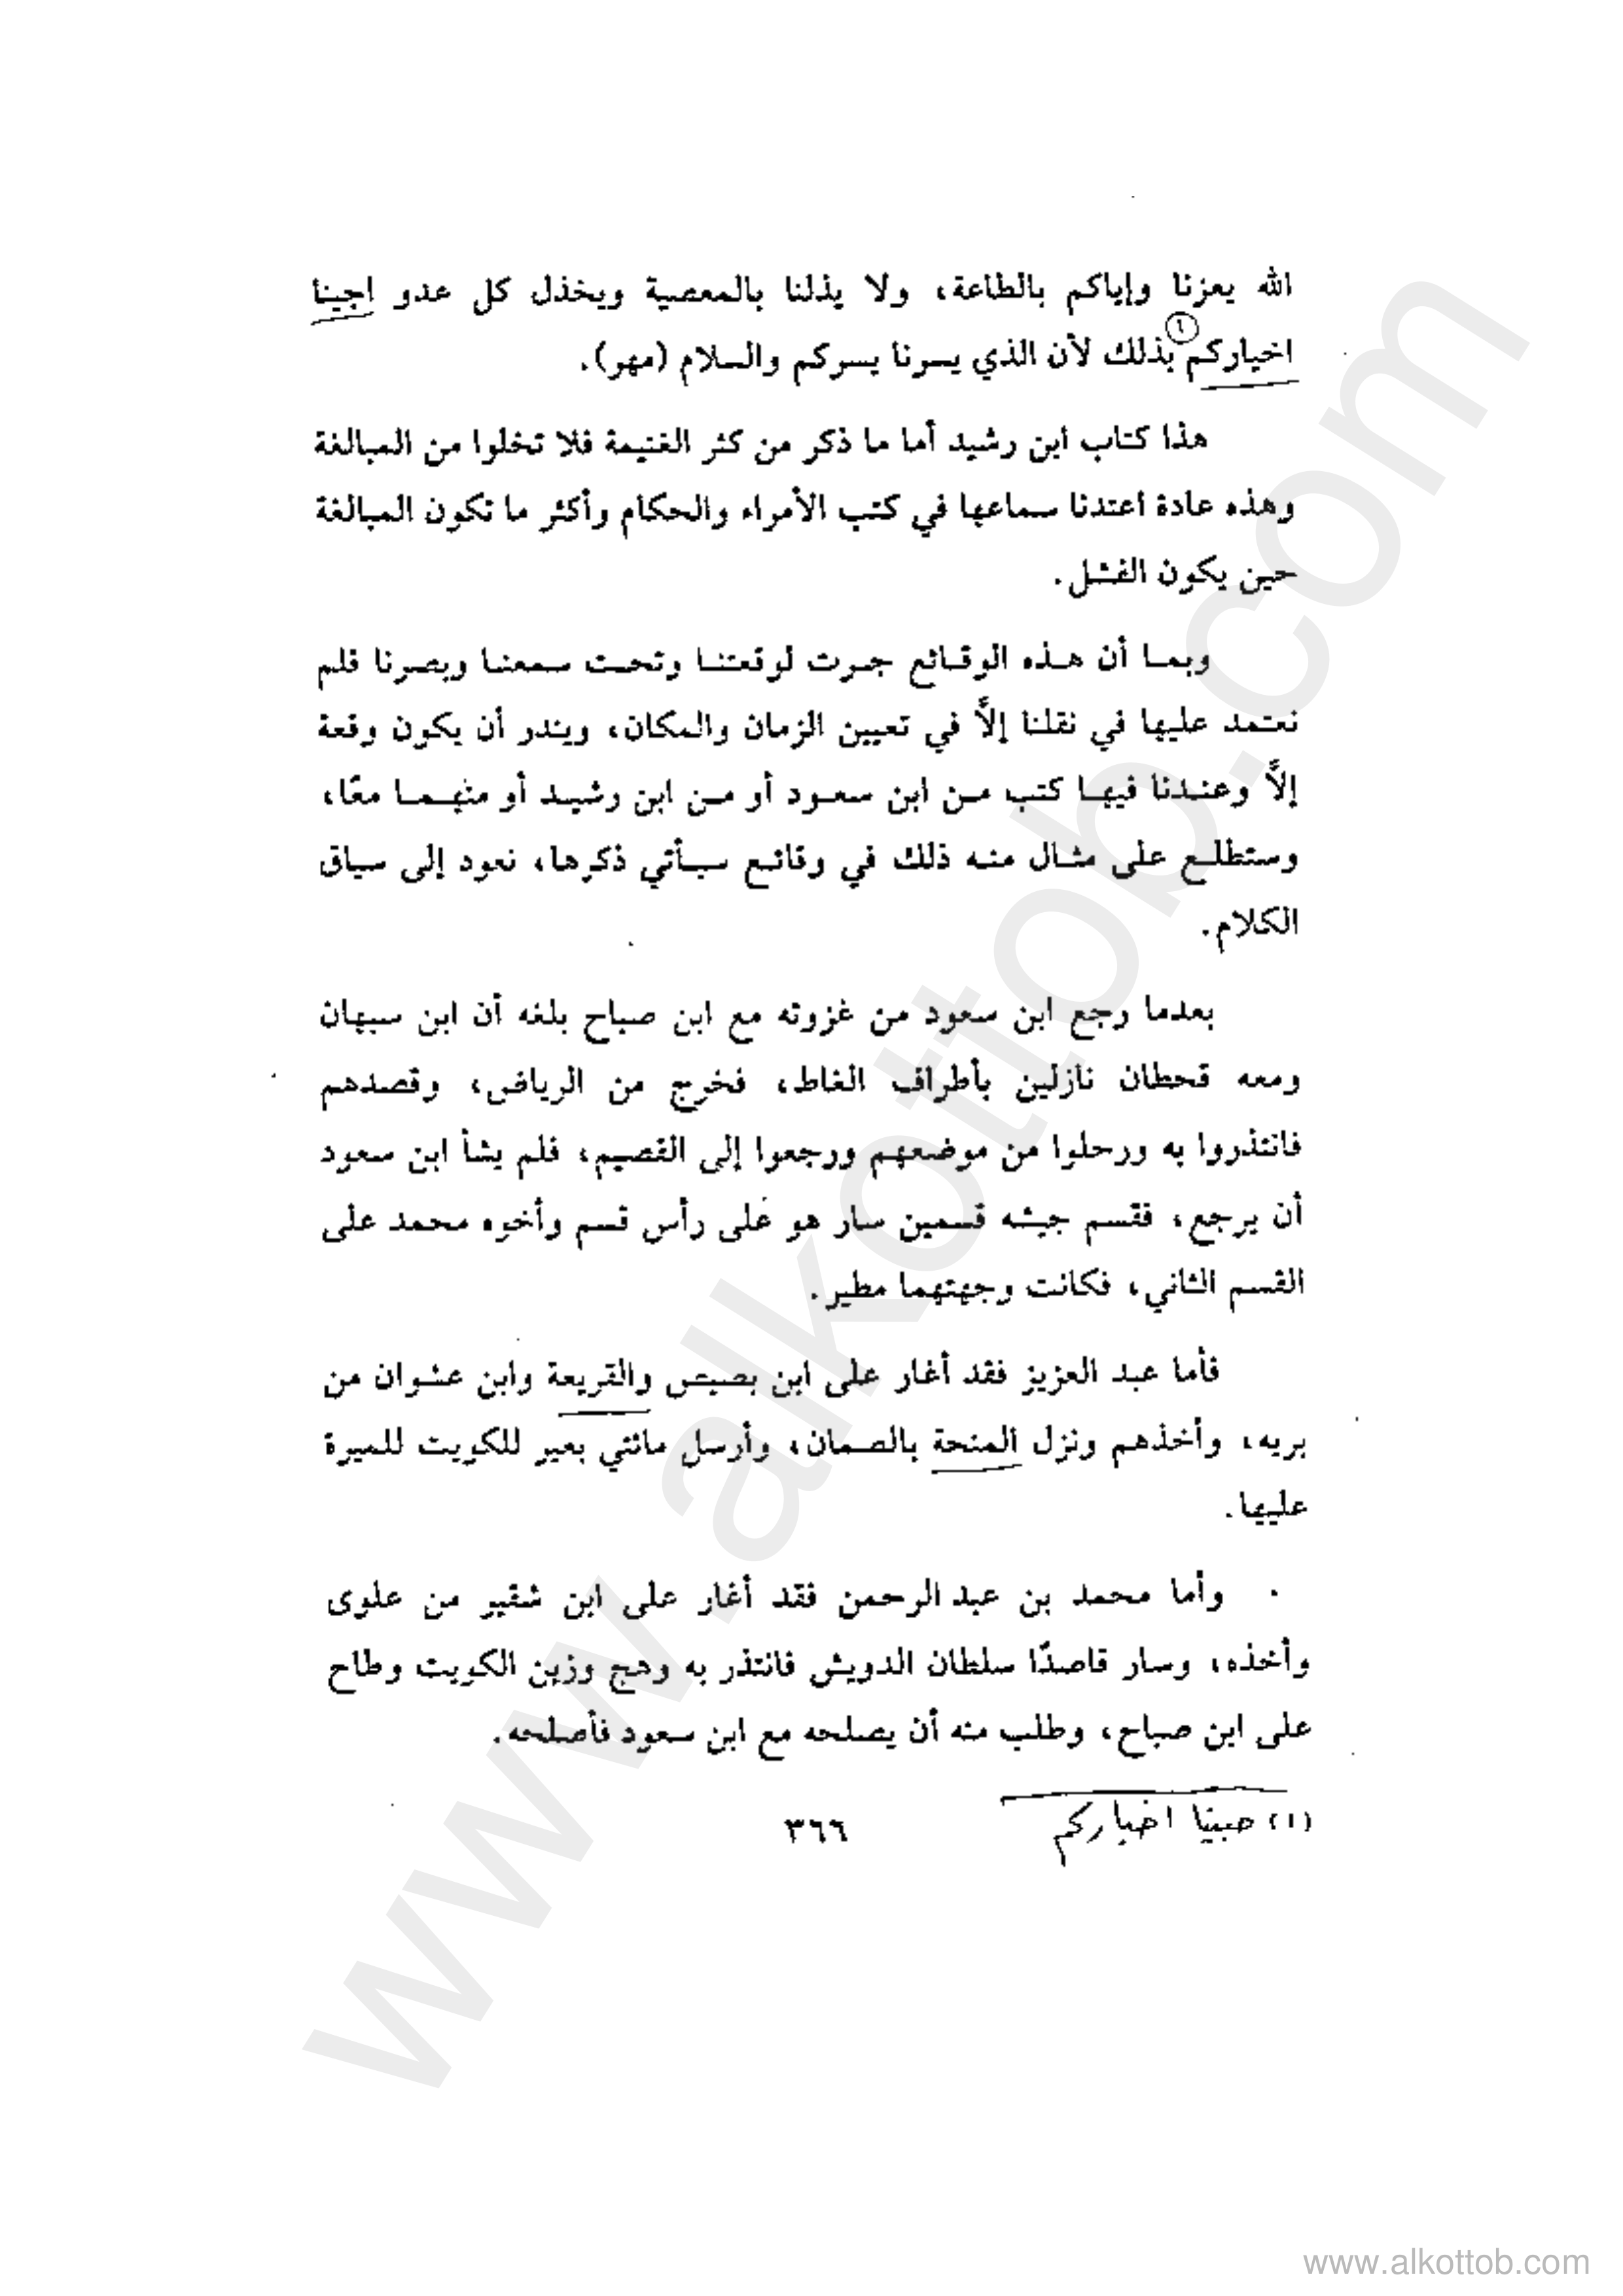 الله يعزنا وإياكم بالطاعة، ولا يذلنا بالمعصية ويخذل كل عدو اجينا
اخياركم (١) بذلك لأن الذي يسرنا يسركم والسلام (مهر).
هذا كتاب ابن رشيد أما ما ذكر من كثر الغنيمة فلا تخلوا من المبالغة
وهذه عادة اعتدنا سماعها في كتب الأمراء والحكام وأكثر ما تكون المبالغة
حين يكون الفشل.
وبما أن هذه الوقائع جرت لوقعتنا وتحت سمعنا وبصرنا فلم
نعتمد عليها في نقلنا إلاَّ في تعيين الزمان والمكان، ويندر أن يكون وقعة
إلاَّ وعندنا فيها كتب من ابن سعود أو من ابن رشيد أو منهما معًا،
وستطلع على مثال منه ذلك في وقائع سيأتي ذكرها، نعود إلى سياق
الكلام.
بعدما رجع ابن سعود من غزوته مع ابن صباح بلغه أن ابن سبهان
ومعه قحطان نازلين بأطراف الغاط، فخرج من الرياض، وقصدهم
فانتذروا به ورحلوا من موضعهم ورجعوا إلى القصيم، فلم يشأ ابن سعود
أن يرجع، فقسم جيشه قسمين سار هو على رأس قسم وأخوه محمد على
القسم الثاني، فكانت وجهتهما مطير.
فأما عبد العزيز فقد أغار على ابن بصيص والقريعة وابن عشوان من
بريه، وأخذهم ونزل المنحة بالصمان، وأرسل مائتي بعير للكويت للميرة
عليها.
وأما محمد بن عبد الرحمن فقد أغار على ابن شقير من علوى
وأخذه، وسار قاصدًا سلطان الدويش فانتذر به وهج وزبن الكويت وطاح
على ابن صباح، وطلب منه أن يصلحه مع ابن سعود فأصلحه.
(١) حبينا اخباركم
٣٦٦
www.alkottob.com
www.alkottob.com